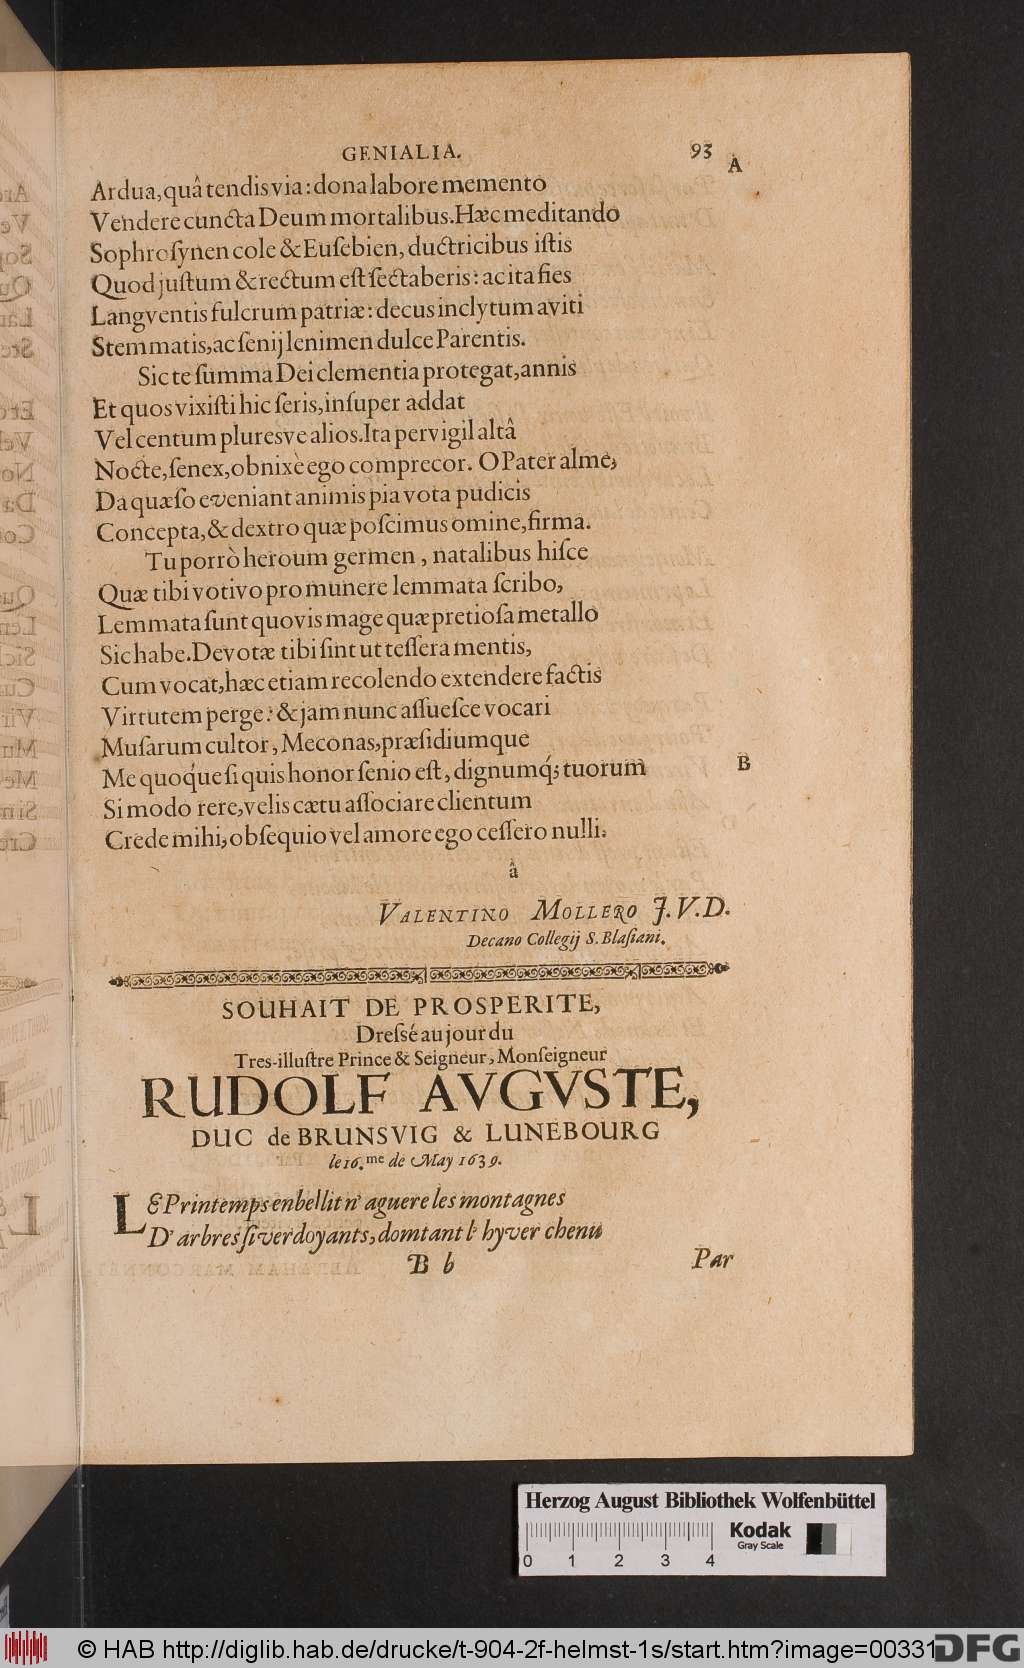 GENIALIA. 93
A
Ardua, quâ tendis via: dona labore memento
Vendere cuncta Deum mortalibus. Hæc meditando
Sophrosynen cole & Eusebien, ductricibus istis
Quod justum & rectum est sectaberis: ac ita fies
Langventis fulcrum patriæ: decus inclytum aviti
Stemmatis, ac senij lenimen dulce Parentis.
Sic te summa Dei clementia protegat, annis
Et quos vixisti hic seris, insuper addat
Vel centum pluresve alios. Ita pervigil altâ
Nocte, senex, obnixè ego comprecor. O Pater alme,
Da quæso eveniant animis pia vota pudicis
Concepta, & dextro quæ poscimus omine, firma.
Tu porrò heroum germen, natalibus hisce
Quæ tibi votivo pro munere lemmata scribo,
Lemmata sunt quovis mage quæ pretiosa metallo
Sic habe. Devotæ tibi sint ut tessera mentis,
Cum vocat, hæc etiam recolendo extendere factis
Virtutem perge: & jam nunc assuesce vocari
Musarum cultor, Meconas, præsidiumque
Me quoq́ue si quis honor senio est, dignumq́; tuorum
B
Si modo rere, velis cætu associare clientum
Crede mihi, obsequio vel amore ego cessero nulli.
â
VALENTINO MOLLERO J.V.D.
Decano Collegij S. Blasiani.
SOUHAIT DE PROSPERITE,
Dressé au jour du
Tres-illustre Prince & Seigneur, Monseigneur
RUDOLF AVGVSTE,
DUC de BRUNSVIG & LUNEBOURG
le 16.me de May 1639.
LE Printemps enbellit n'aguere les montagnes
D'arbres si verdoyants, domtant l'hyver chenu
B b Par
Herzog August Bibliothek Wolfenbüttel
Kodak
Gray Scale
0 1 2 3 4
© HAB http://diglib.hab.de/drucke/t-904-2f-helmst-1s/start.htm?image=00331
DFG